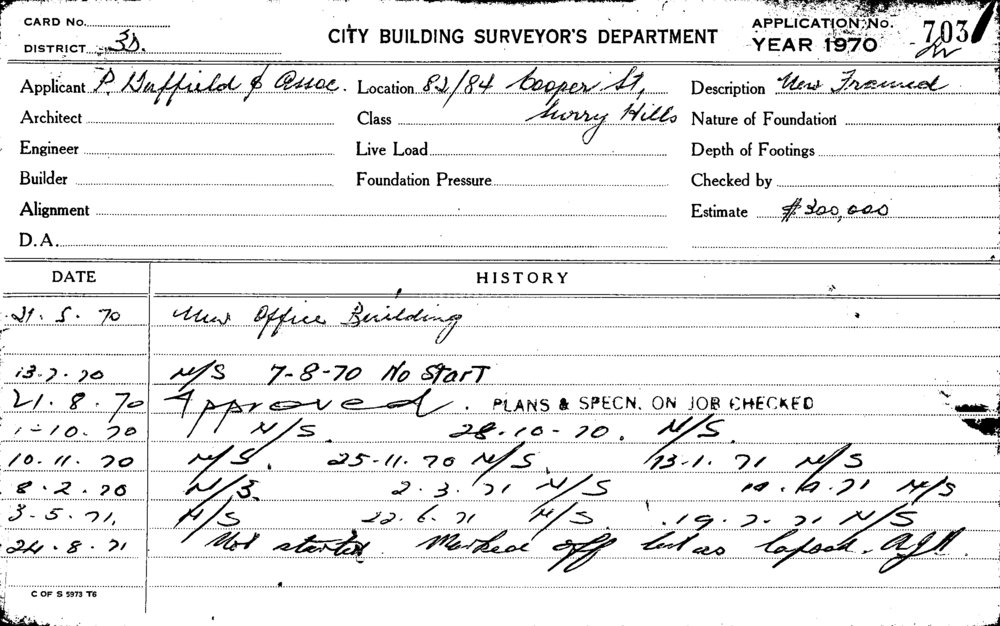 CARD No.
DISTRICT 3D.
CITY BUILDING SURVEYOR'S DEPARTMENT
APPLICATION No. 703
YEAR 1970
Applicant P. Duffield & Assoc. Location 82/84 Cooper St, Description New Framed
Architect Class Surry Hills Nature of Foundation
Engineer Live Load Depth of Footings
Builder Foundation Pressure Checked by
Alignment Estimate $300,000
D.A.
DATE HISTORY
21. 5. 70 New Office Building
13.7.70 N/S 7-8-70 No Start
21. 8. 70 Approved. PLANS & SPECN. ON JOB CHECKED
1-10. 70 N/S. 28-10-70. N/S.
10. 11. 70 N/S. 25-11. 70 N/S. 13-1. 71 N/S
8. 2. 70 N/S. 2. 3. 71 N/S 71 N/S
3. 5. 71. N/S 22. 6. 71 N/S. 19. 7. 71 N/S
24. 8. 71 Not started. Marked off list as lapsed.
C OF S 5973 T6